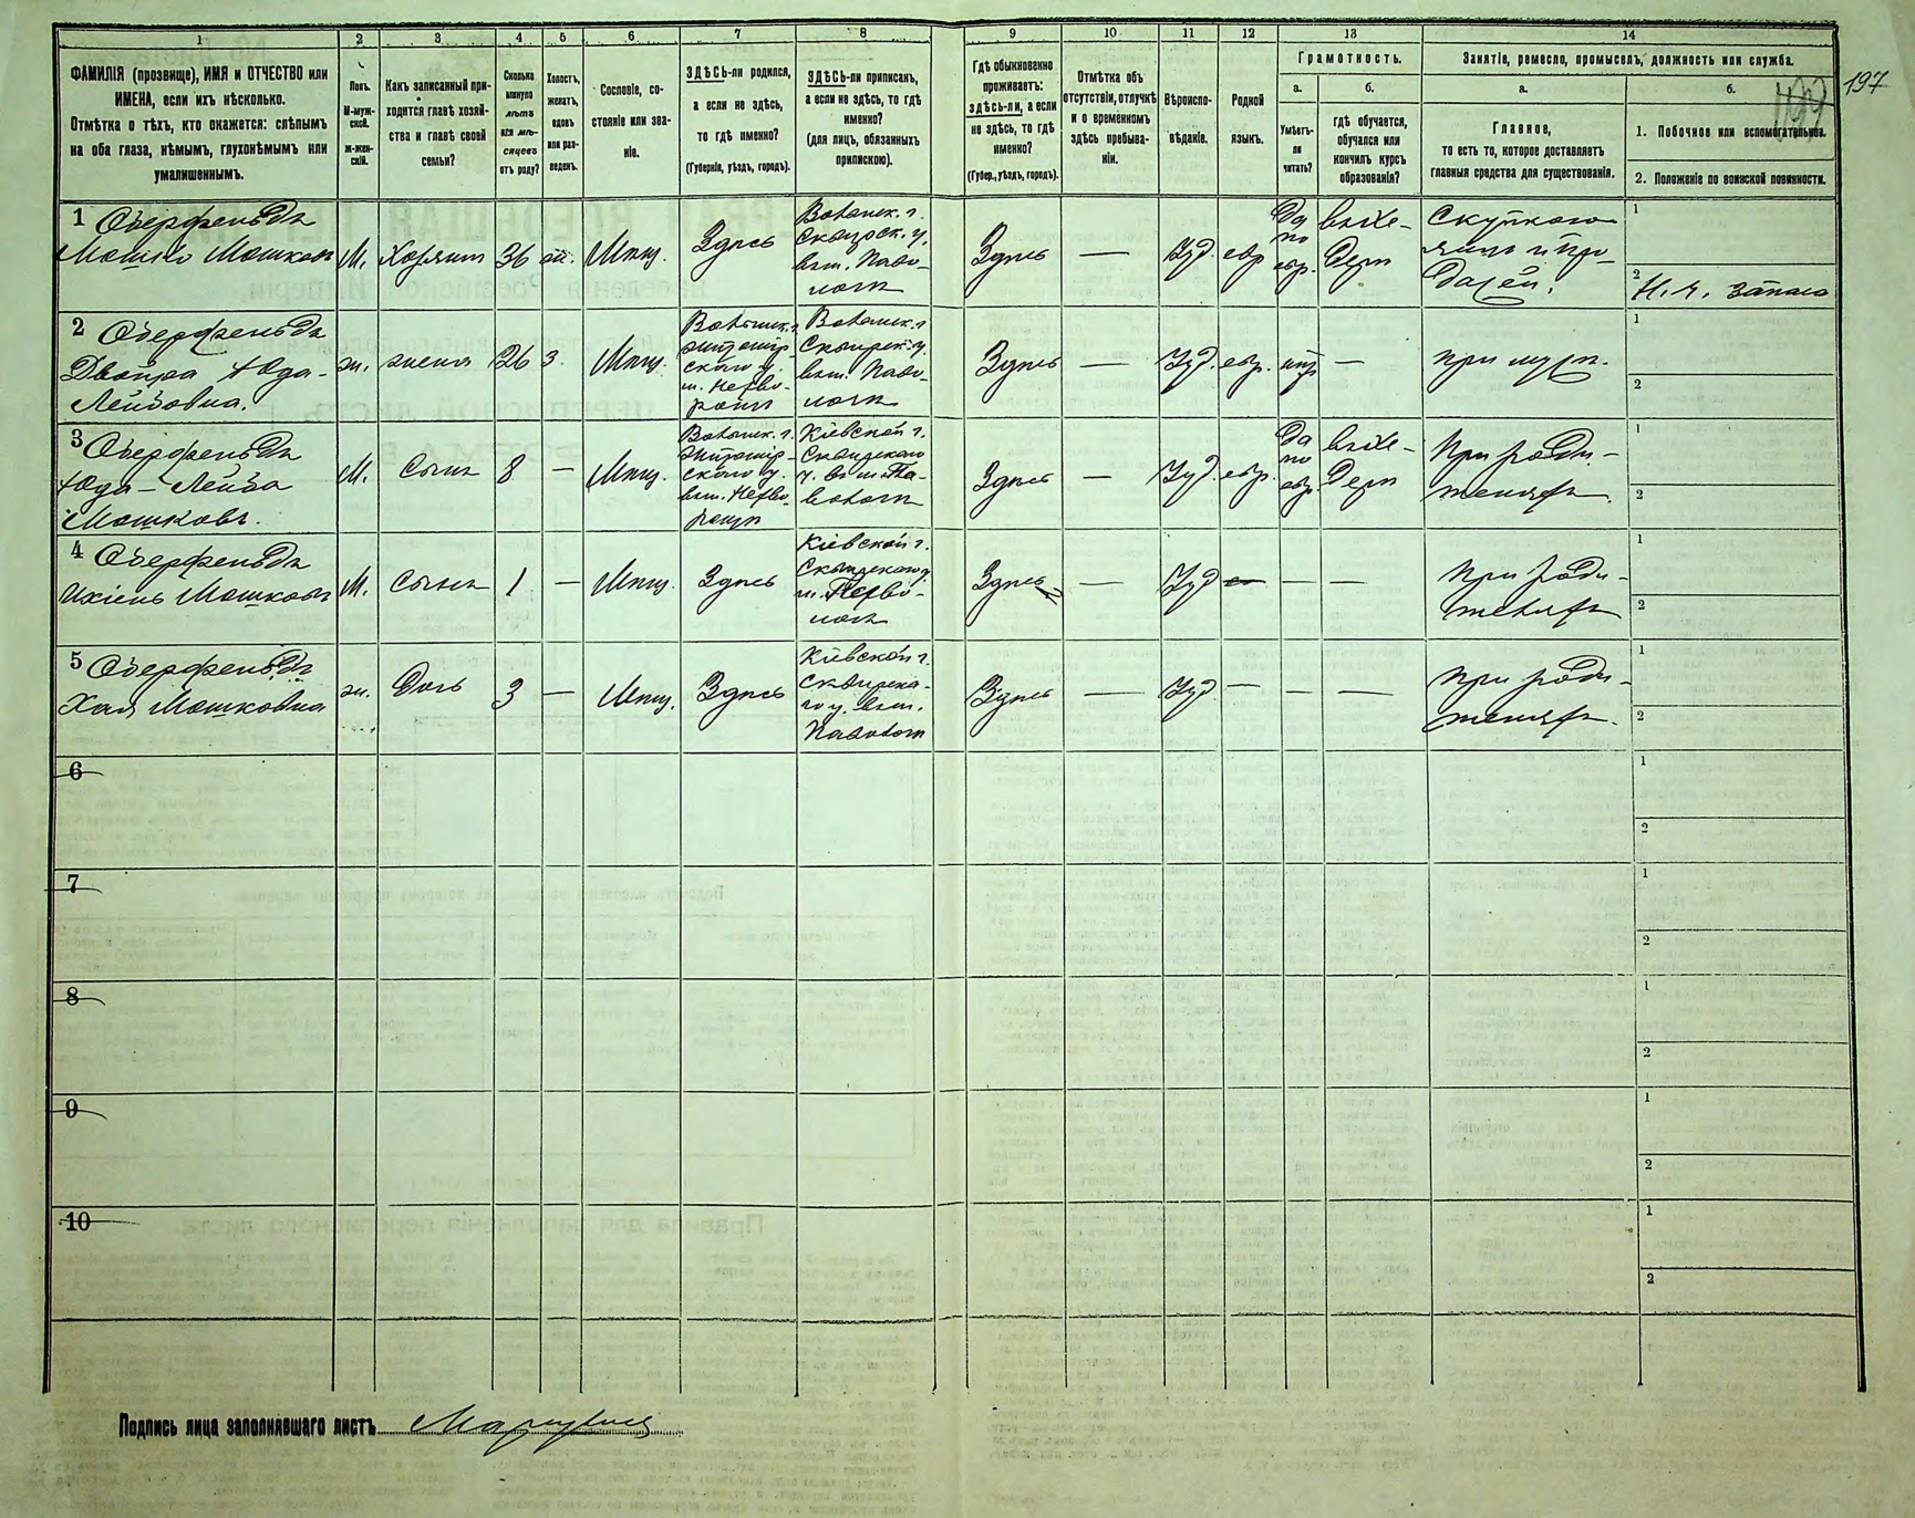 1 2 3 4 5 6 7 8 9 10 11 12 13 14
197
ФАМИЛІЯ (прозвище), ИМЯ и ОТЧЕСТВО или
ИМЕНА, если ихъ нѣсколько.
Отмѣтка о тѣхъ, кто окажется: слѣпымъ
на оба глаза, нѣмымъ, глухонѣмымъ или
умалишеннымъ.
Полъ.
М-муж-
ской.
ж-жен-
скій.
Какъ записанный при-
ходится главѣ хозяй-
ства и главѣ своей
семьи?
Сколько
минуло
лѣтъ
или мѣ-
сяцевъ
отъ роду?
Холостъ,
женатъ,
вдовъ
или раз-
веденъ.
Сословіе, со-
стояніе или зва-
ніе.
ЗДѢСЬ-ли родился,
а если не здѣсь,
то гдѣ именно?
(Губернія, уѣздъ, городъ).
ЗДѢСЬ-ли приписанъ,
а если не здѣсь, то гдѣ
именно?
(для лицъ, обязанныхъ
припискою).
Гдѣ обыкновенно
проживаетъ:
здѣсь-ли, а если
не здѣсь, то гдѣ
именно?
(Губер., уѣздъ, городъ).
Отмѣтка объ
отсутствіи, отлучкѣ
и о временномъ
здѣсь пребыва-
ніи.
Вѣроиспо-
вѣданіе.
Родной
языкъ.
Грамотность.
а.
Умѣетъ-
ли
читать?
б.
гдѣ обучается,
обучался или
кончилъ курсъ
образованія?
Занятіе, ремесло, промыселъ, должность или служба.
а.
Главное,
то есть то, которое доставляетъ
главныя средства для существованія.
б.
1. Побочное или вспомогательное.
2. Положеніе по воинской повинности.
1 Оберфельдъ
Мошко Мошковъ
М.
Хозяинъ
36
Мѣщ.
Здѣсь
Волынск. г.
Сквирск. у.
вм. Паво-
лочи
Здѣсь
—
Іуд.
евр
Да
по
евр.
въ хе-
дерѣ
1
2
Н. ч. запаса
2 Оберфельдъ
Двойра Юда-
Лейбовна.
ж.
жена
26
з.
Мѣщ.
Волынск. г.
Житомір-
скаго у.
Волынск. г
Сквирск. у.
вм. Паво-
лочи
Здѣсь
—
Іуд.
евр.
—
при муж.
1
2
3 Оберфельдъ
Юда-Лейба
Мошковъ.
М.
Сынъ
8
—
Мѣщ.
Волынск. г.
Житомір-
скаго у.
Кіевской г.
Сквирскаго
у. вм. Па-
волочи
Здѣсь
—
Іуд.
евр.
Да
по
евр.
въ хе-
дерѣ
При роди-
теляхъ.
1
2
4 Оберфельдъ
Ихіель Мошковъ
М.
Сынъ
1
—
Мѣщ.
Здѣсь
Кіевской г.
Сквирскаго у.
Здѣсь
—
Іуд
—
—
При роди-
теляхъ
1
2
5 Оберфельдъ
Хая Мошковна
ж.
Дочь
3
—
Мѣщ.
Здѣсь
Кіевской г.
Сквирска-
го у. вм.
Паволочи
Здѣсь
—
Іуд.
—
—
—
При роди-
теляхъ.
1
2
6
1
2
7
1
2
8
1
2
9
1
2
10
1
2
Подпись лица заполнявшаго листъ